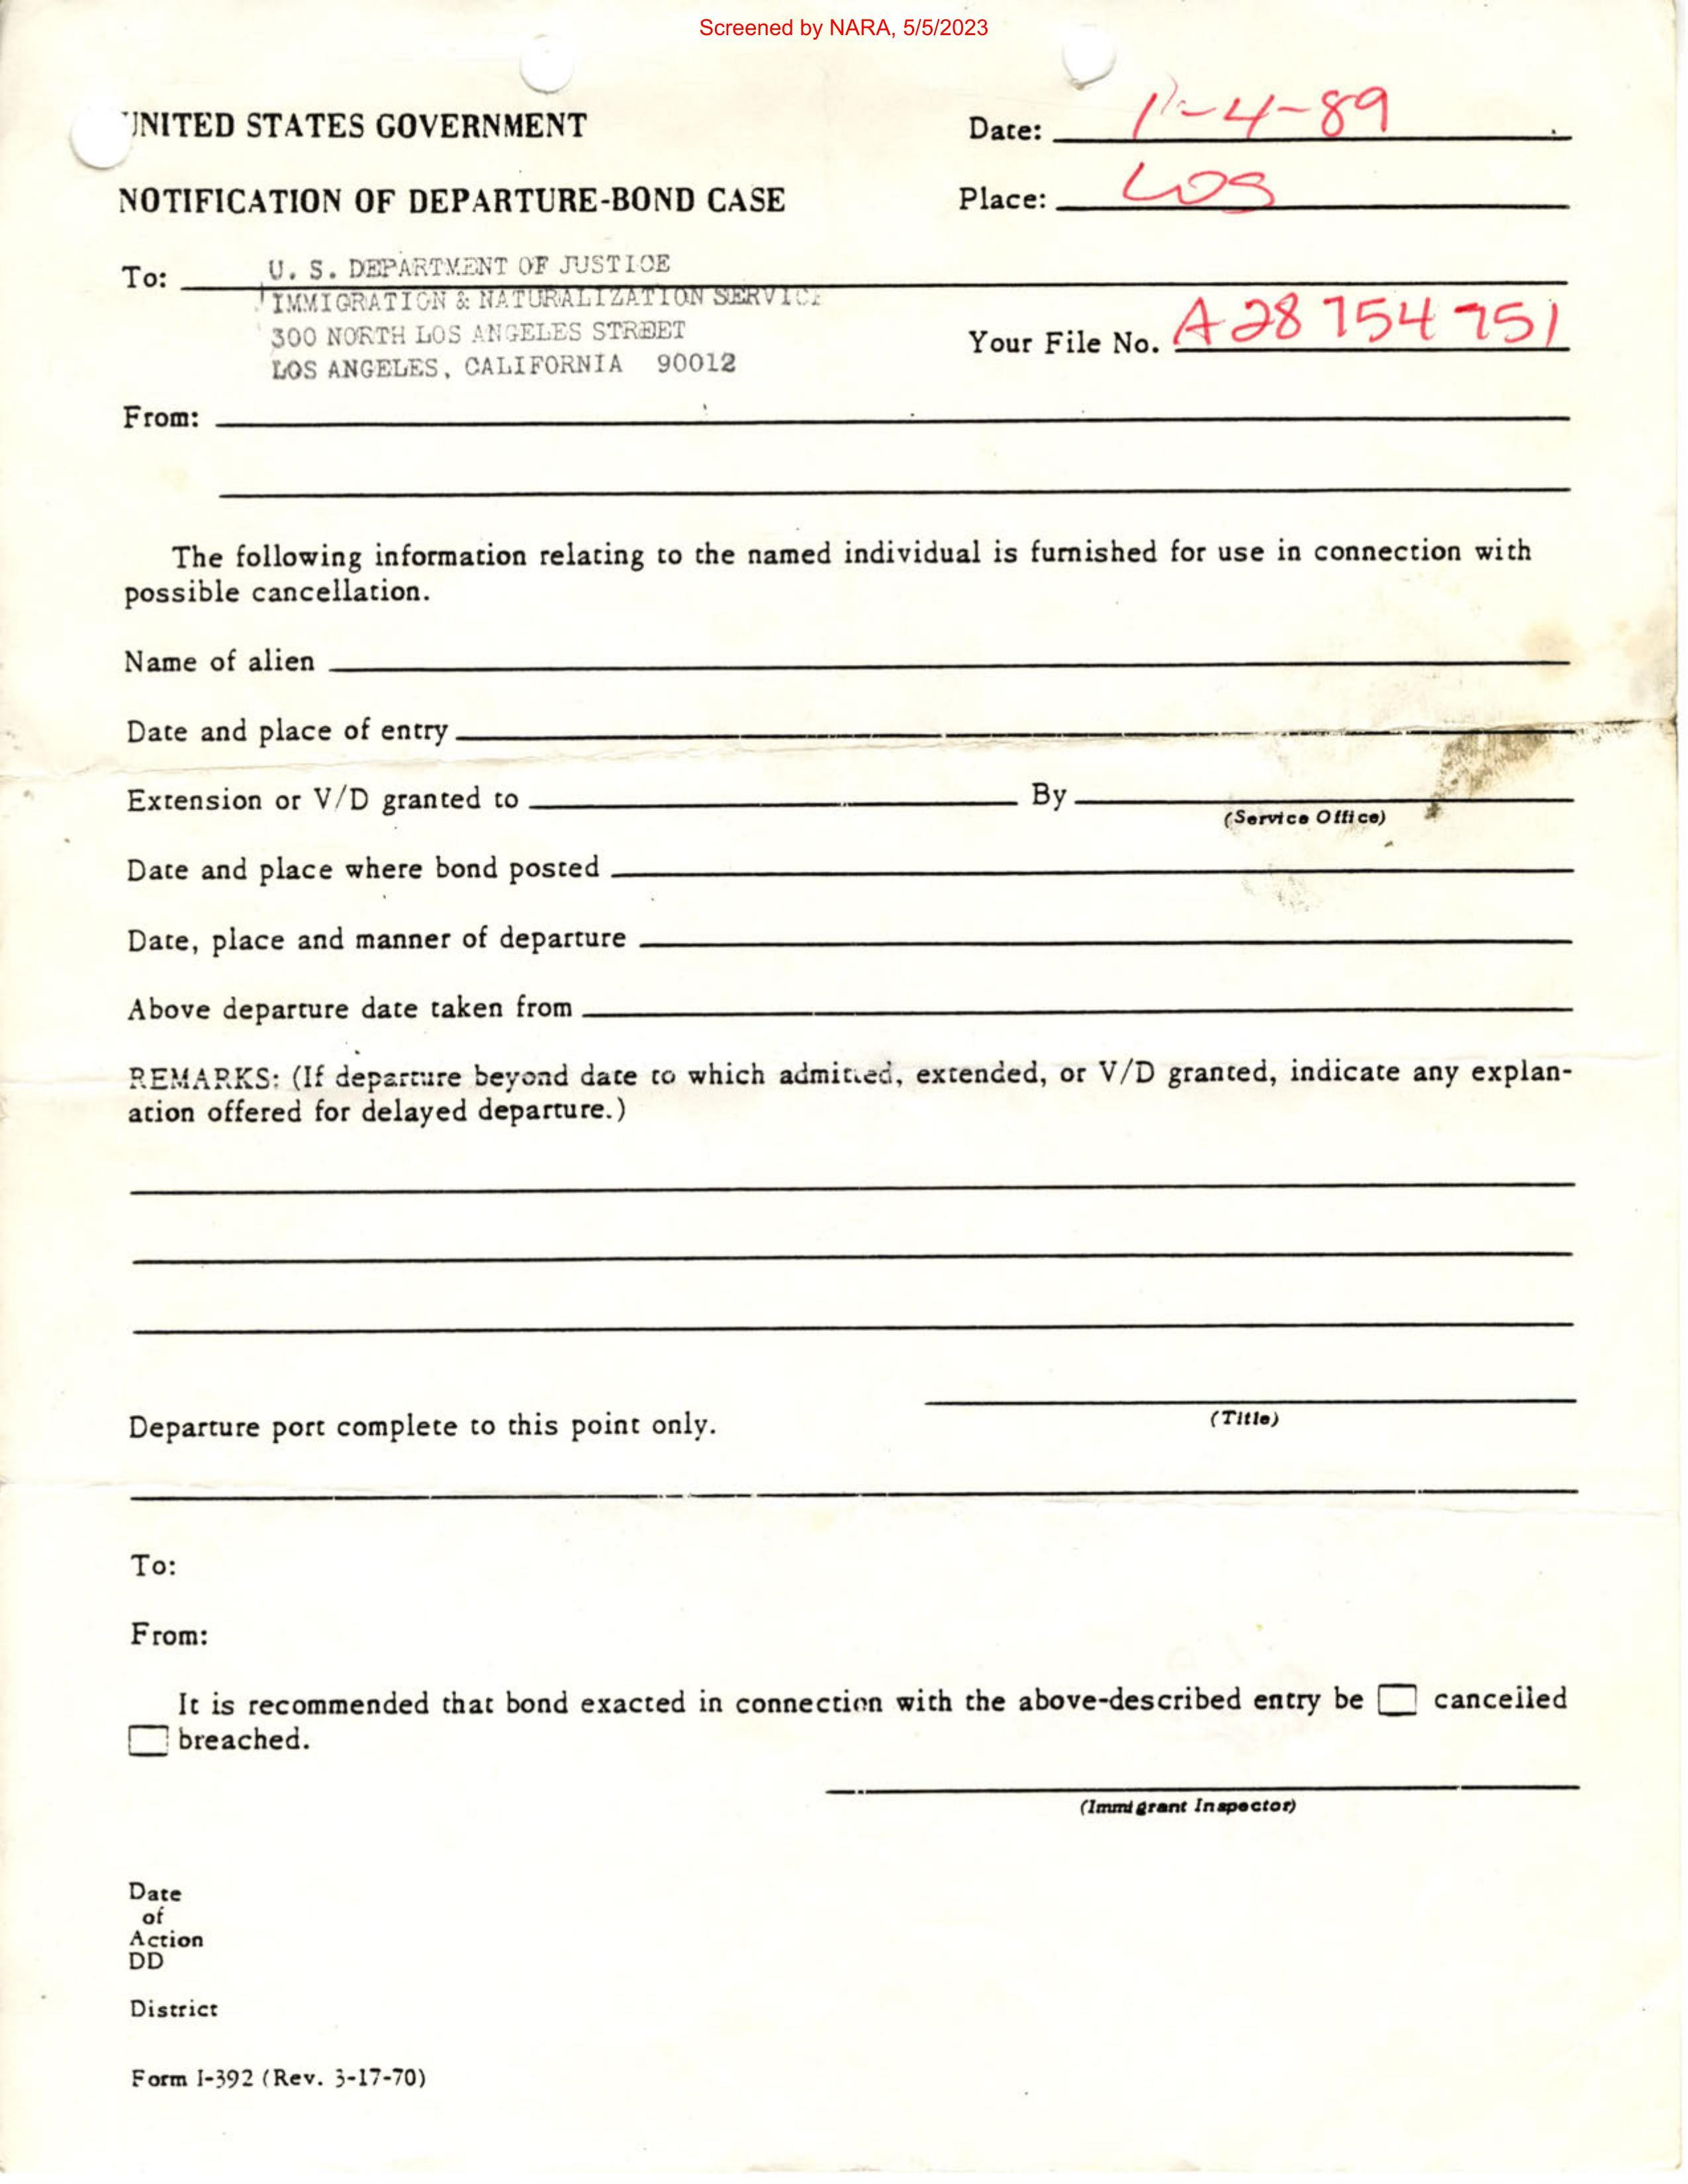 Screened by NARA, 5/5/2023
UNITED STATES GOVERNMENT
Date: 11-4-89
NOTIFICATION OF DEPARTURE-BOND CASE
Place: LOS
To: U. S. DEPARTMENT OF JUSTICE
IMMIGRATION & NATURALIZATION SERVICE
300 NORTH LOS ANGELES STREET
Your File No. A28 754 751
LOS ANGELES, CALIFORNIA 90012
From:
The following information relating to the named individual is furnished for use in connection with
possible cancellation.
Name of alien
Date and place of entry
Extension or V/D granted to By
(Service Office)
Date and place where bond posted
Date, place and manner of departure
Above departure date taken from
REMARKS: (If departure beyond date to which admitted, extended, or V/D granted, indicate any explan-
ation offered for delayed departure.)
(Title)
Departure port complete to this point only.
To:
From:
It is recommended that bond exacted in connection with the above-described entry be cancelled
breached.
(Immigrant Inspector)
Date
of
Action
DD
District
Form I-392 (Rev. 3-17-70)